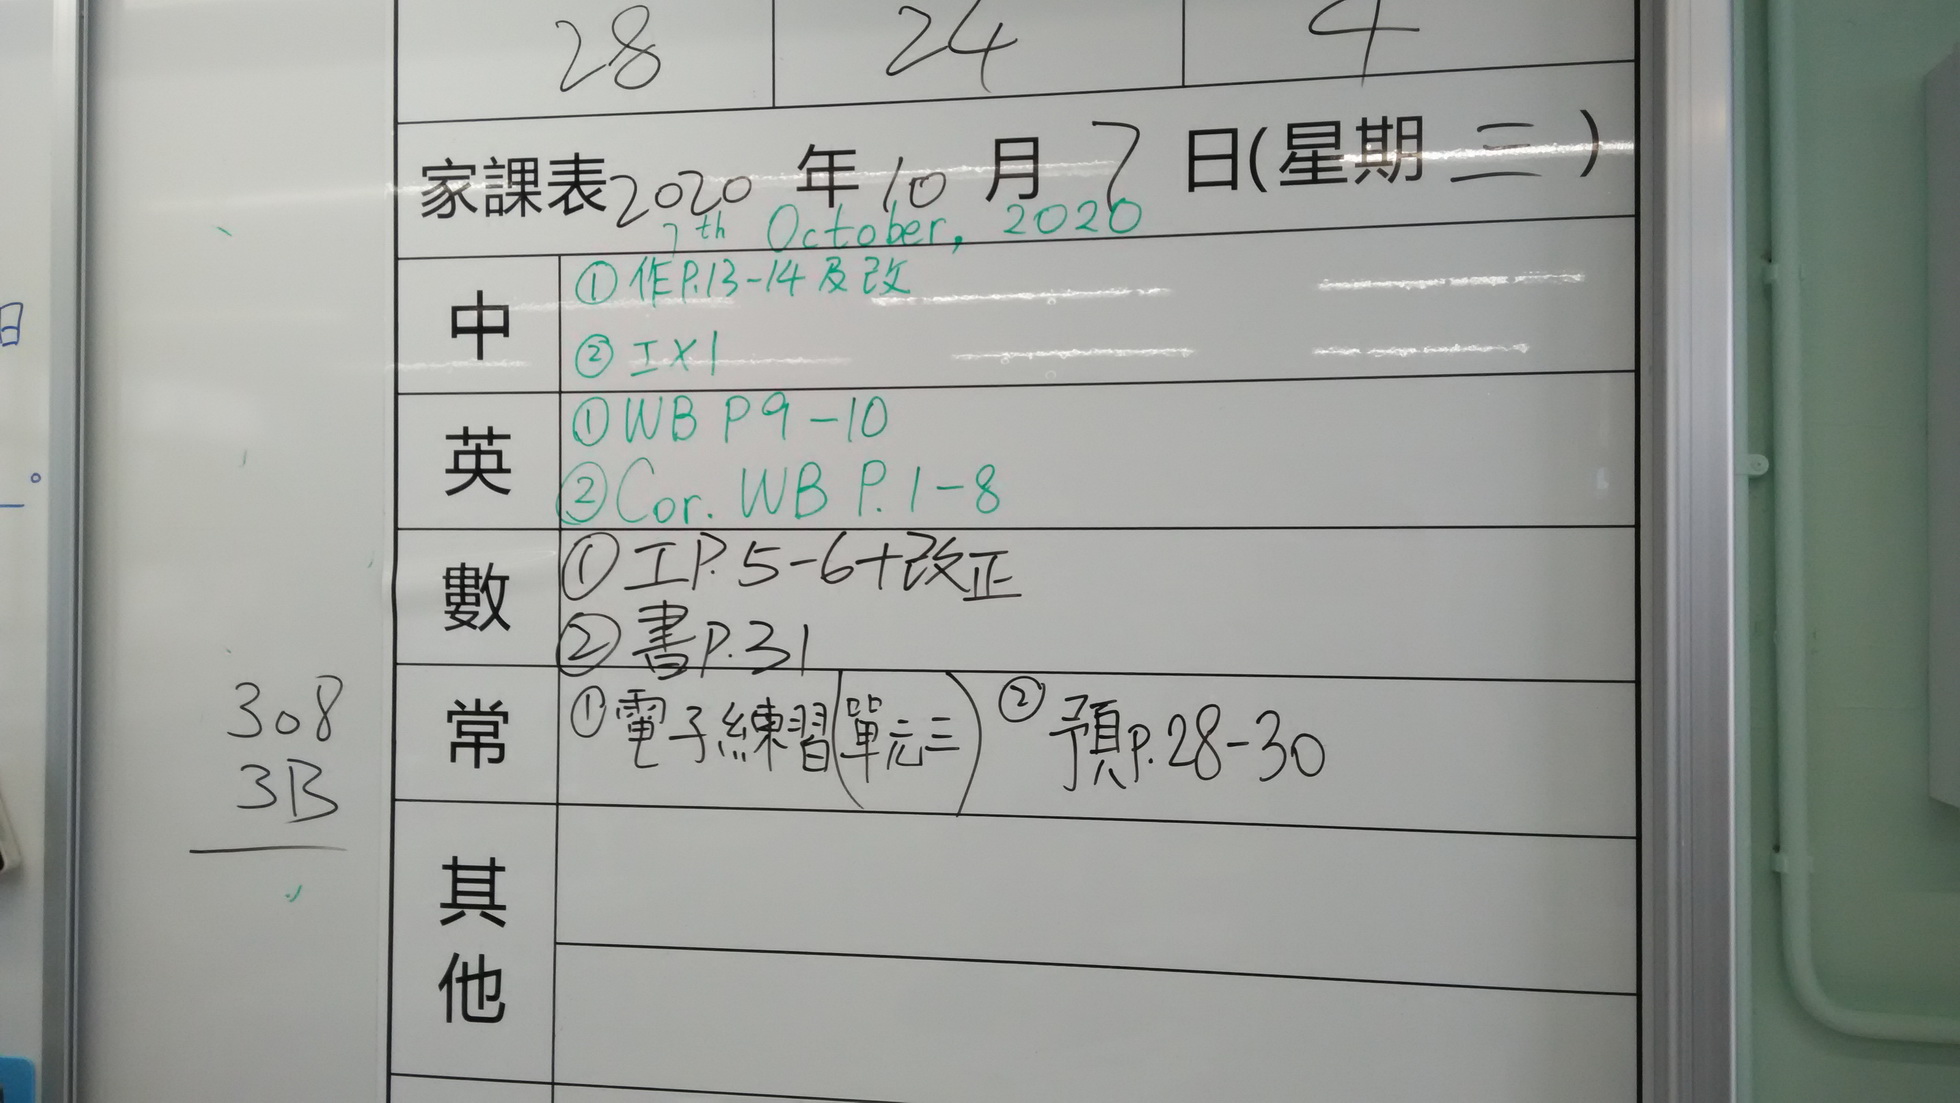 28 24 4
家課表2020年10月7日(星期三)
7th October, 2020
中
①作P.13-14及改
②工X1
英
①WB P9-10
②Cor. WB P.1-8
數
①工P.5-6+改正
②書P.31
常
①電子練習(單元三) ②預P.28-30
其他
308
3B
日